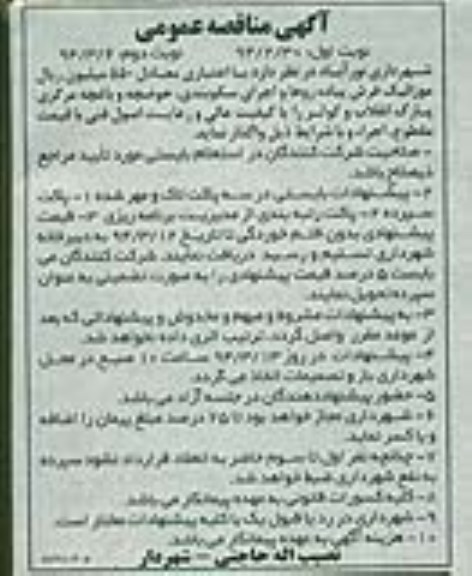 آگهی مناقصه عمومی
نوبت اول: ۹۴/۲/۳۰ نوبت دوم: ۹۴/۳/۶
شهرداری نورآباد در نظر دارد با اعتباری معادل ۵۵۰ میلیون ریال
موزائیک فرش پیاده روها و اجرای سکوبندی، حوضچه و باغچه مرکزی
پارک انقلاب و کوثر را با کیفیت عالی و رعایت اصول فنی با قیمت
مقطوع، اجراء و با شرایط ذیل واگذار نماید.
صلاحیت شرکت کنندگان در استعلام بایستی مورد تأیید مراجع
ذیصلاح باشد.
۲- پیشنهادات بایستی در سه پاکت لاک و مهر شده ۱- پاکت
سپرده ۲- پاکت رتبه بندی از مدیریت برنامه ریزی ۳- قیمت
پیشنهادی بدون قلم خوردگی تا تاریخ ۹۴/۳/۱۲ به دبیرخانه
شهرداری تسلیم و رسید دریافت نمایند. شرکت کنندگان می
بایست ۵ درصد قیمت پیشنهادی را به صورت تضمینی به عنوان
سپرده تحویل نمایند.
۳- به پیشنهادات مشروط و مبهم و مخدوش و پیشنهاداتی که بعد
از موعد مقرر واصل گردند، ترتیب اثری داده نخواهد شد.
۴- پیشنهادات در روز ۹۴/۳/۱۳ ساعت ۱۰ صبح در محل
شهرداری باز و تصمیمات اتخاذ می گردد.
۵- حضور پیشنهاددهندگان در جلسه آزاد می باشد.
۶- شهرداری مجاز خواهد بود تا ۲۵ درصد مبلغ پیمان را اضافه
و یا کسر نماید.
۷- چنانچه نفر اول تا سوم حاضر به انعقاد قرارداد نشود سپرده
به نفع شهرداری ضبط خواهد شد.
۸- کلیه کسورات قانونی به عهده پیمانکار می باشد.
۹- شهرداری در رد یا قبول یک یا کلیه پیشنهادات مختار است.
۱۰- هزینه آگهی به عهده پیمانکار می باشد.
نصیب اله حاجتی - شهردار